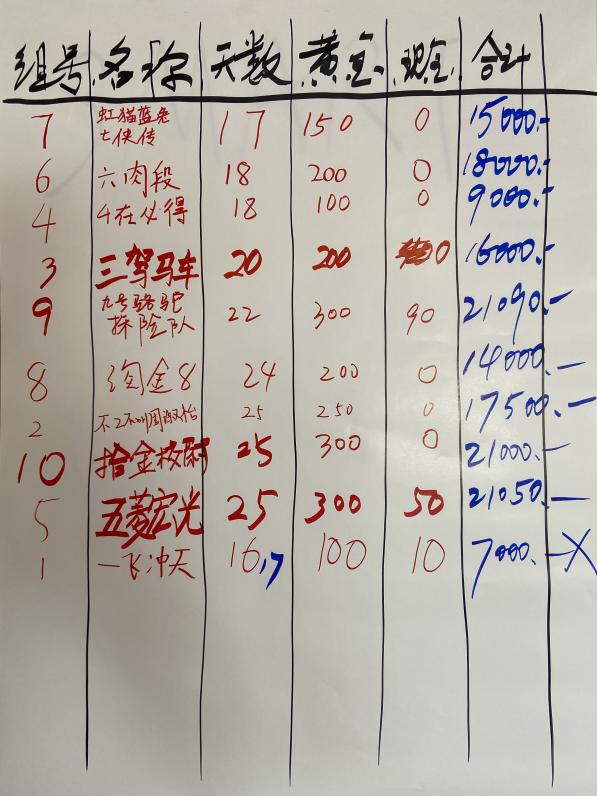 组号 名称 天数 黄金 现金 合计
7 虹猫蓝兔七侠传 17 150 0 15000.-
6 六肉段 18 200 0 18000.-
4 4在必得 18 100 0 9000.-
3 三驾马车 20 200 0 16000.-
9 九号骆驼探险队 22 300 90 21090.-
8 淘金8 24 200 0 14000.-
2 不2不叫周 25 250 0 17500.-
10 拾金校尉 25 300 0 21000.-
5 五菱宏光 25 300 50 21050.-
1 一飞冲天 16,17 100 10 7000.-X